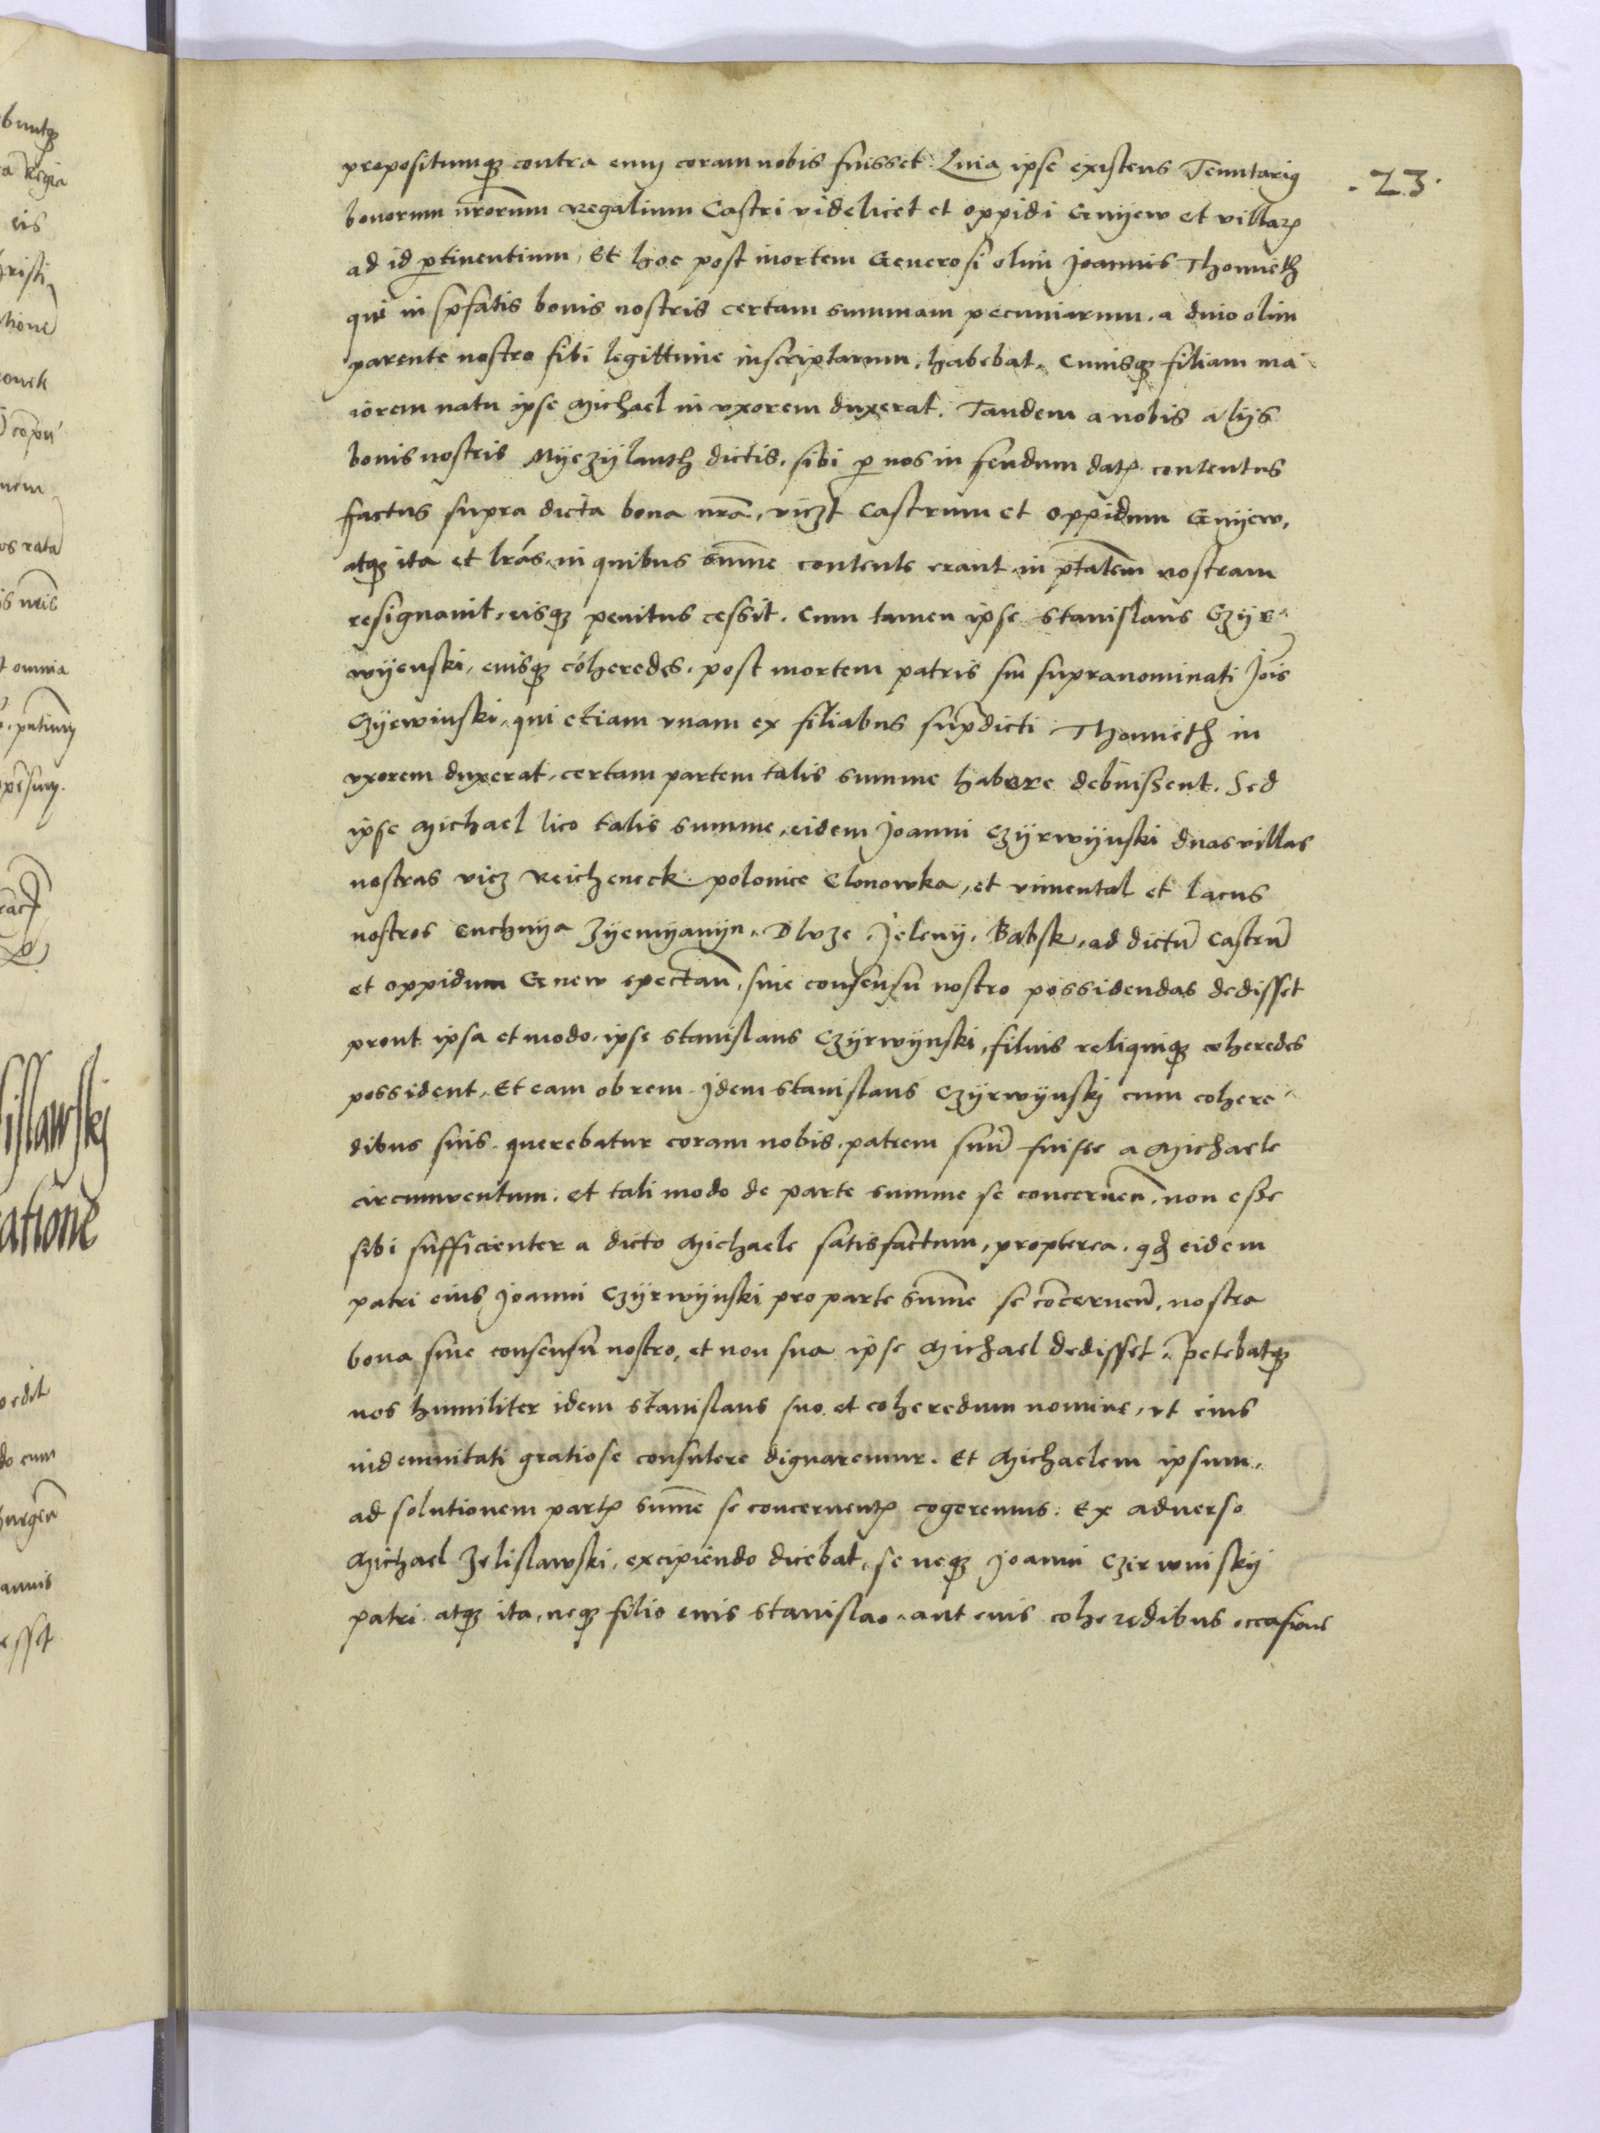 .23.
propositumq₃ contra eum coram nobis fuisset. Quia ipse existens Tenutariꝰ
bonorum nr̃orum Regalium Castri videlicet et oppidi Gnÿew et villaꝝ
ad id ꝑtinentium, Et hoc post mortem Generosi olim Joannis Thomicth
qui in p̃fatis bonis nostris certam summam pecuniarum, a diuo olim
parente nostro sibi legittime inscriptarum, habebat, Cuiusq₃ filiam ma
iorem natu ipse Michael in vxorem duxerat. Tandem a nobis alÿs
bonis nostris dictis, sibi ꝑ nos in feudum datꝭ contentus
factus supra dicta bona nr̃a, vicz̃t Castrum et oppidum Gnÿew,
atq₃ ita et lr̃as, in quibus sum̃e contente erant in p̃tatem nostram
resignauit, eisq₃ penitus cessit. Cum tamen ipse Stanislaus Czÿr
wÿenski, eiusq₃ cohæredes, post mortem patris sui supranominati Jois̃
Czÿewinski, qui etiam vnam ex filiabus sup̃dicti Thomicth in
vxorem duxerat, certam partem talis summe habere debuissent. Sed
ipse Michael lico talis summe, eidem Joanni Czÿrwÿnski duas villas
nostras vicz Reicheneck polonice Elonowka, et vimental et lacus
nostros Zÿemÿanÿn, Dluze, Jelenÿ, Babsk, ad dictũ Castrũ
et oppidum Gnew spectañ, sine consensu nostro possidendas dedisset
prout ipsa et modo, ipse Stanislaus Czÿrwÿnski, filius reliquiq₃ coheredes
possident, Et eam ob rem Idem Stanislaus Czÿrwÿnskj cum cohere
dibus suis querebatur coram nobis, patrem suũ fuisse a Michaele
circumuentum, et tali modo de parte summe se concerneñ, non esse
sibi sufficienter a dicto Michaele satisfactum, propterea, qđ eidem
patri eius Joanni Czÿrwÿnski pro parte sum̃e se con̄cerneñ, nostra
bona sine consensu nostro, et non sua ipse Michael dedisset. Petebatq₃
nos humiliter idem Stanislaus suo et coheredum nomine, vt eius
indemnitati gratiose consulere dignaremur. Et Michaelem ipsum,
ad solutionem partꝭ sum̃e se concernentꝭ cogeremus. Ex aduerso
Michael Zelislawski, excipiendo dicebat, se neq₃ Joanni Czerwinskÿ
patri atq₃ ita, neq₃ filio eius Stanislao, aut eius coheredibus occasione